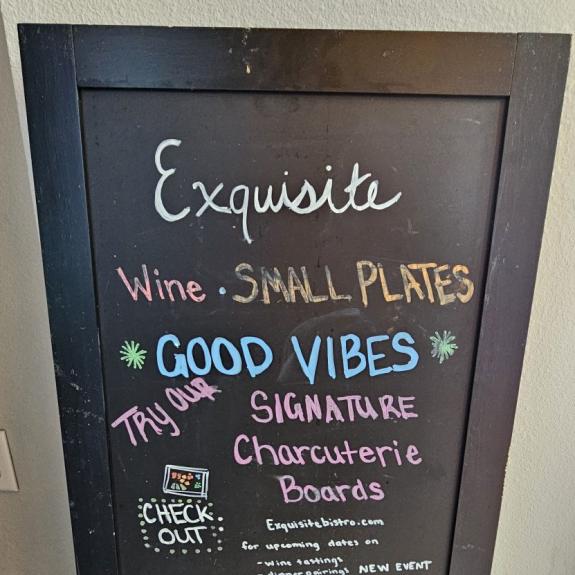 Exquisite
Wine · SMALL PLATES
GOOD VIBES
TRY OUR
SIGNATURE
Charcuterie
Boards
CHECK
OUT
Exquisitebistro.com
for upcoming dates on
- wine tastings
- dinner pairings
NEW EVENT